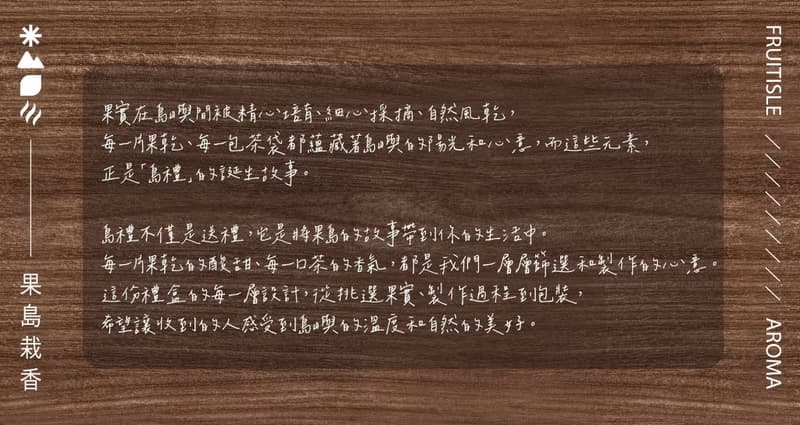 果島栽香
果實在島嶼間被精心培育、細心採摘、自然風乾，
每一片果乾、每一包茶袋都蘊藏著島嶼的陽光和心意，而這些元素，
正是「島禮」的誕生故事。
島禮不僅是送禮，它是將果島的故事帶到你的生活中。
每一片果乾的酸甜、每一口茶的香氣，都是我們一層層篩選和製作的心意。
這份禮盒的每一層設計，從挑選果實、製作過程到包裝，
希望讓收到的人感受到島嶼的溫度和自然的美好。
FRUITISLE
AROMA